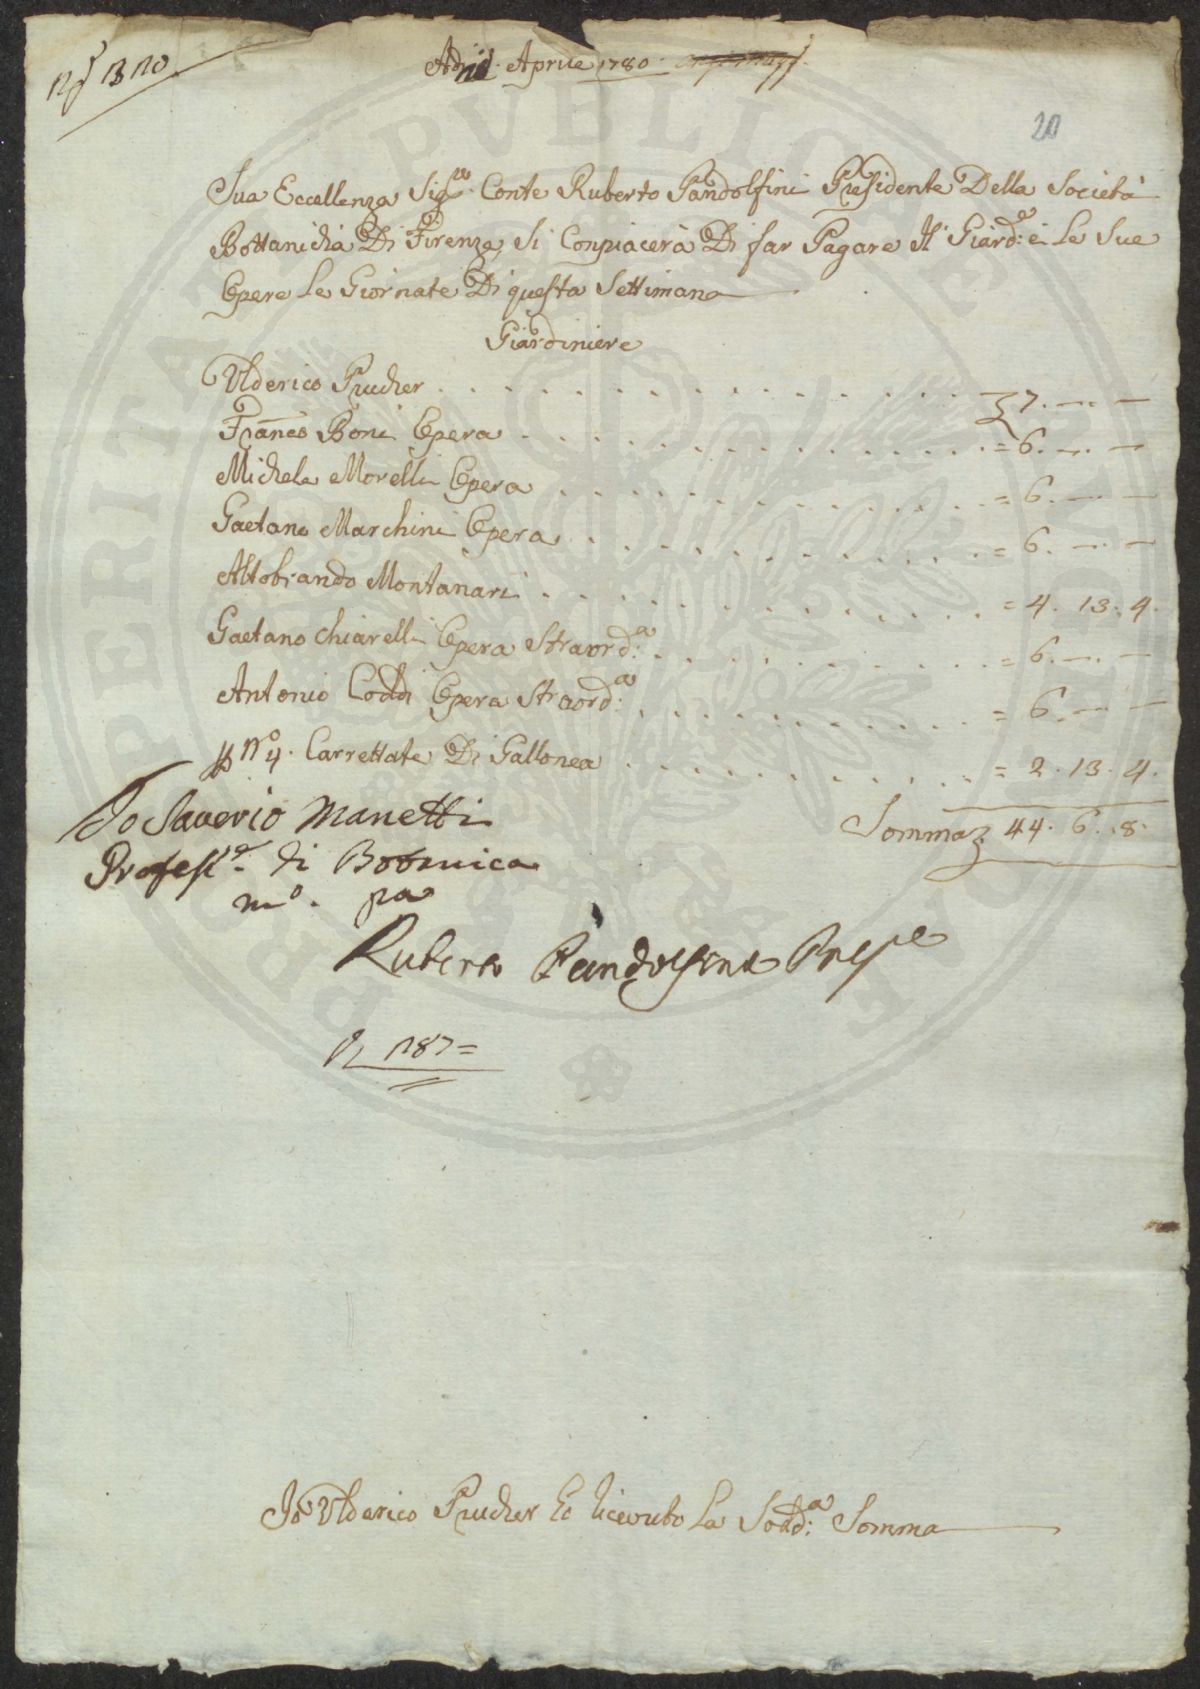 Aprile 1780
20
Sua Eccellenza Sig.re Conte Ruberto Pandolfini Presidente Della Società
Bottanicha Di Firenze, Si Conpiacerà Di far Pagare Il Giard:e e Le Sue
Opere Le Giornate Di questa Settimana
Giardiniere
Ulderico Prucher . . . 7. —. —
Fran.co Boni Opera . . . = 6. —. —
Michele Morelli Opera . . . = 6. —. —
Gaetano Marchini Opera . . . = 6. —. —
Altobrando Montanari . . . = 4. 13. 4.
Gaetano Chiarelli Opera Straord:a . . . = 6. —. —
Antonio Coddi Opera Straord:a . . . = 6. —. —
p n.o 4. Carrettate Di Gallonea . . . = 2. 13. 4.
Somma 44. 6. 8.
Io Saverio Manetti
Profess.e di Botanica
m.o pa
Ruberto Pandolfini Pres.e
1787 =
Io Ulderico Prucher Ho Ricevuto La Sodd:a Somma
PVBLICAE
PROSPERITATI